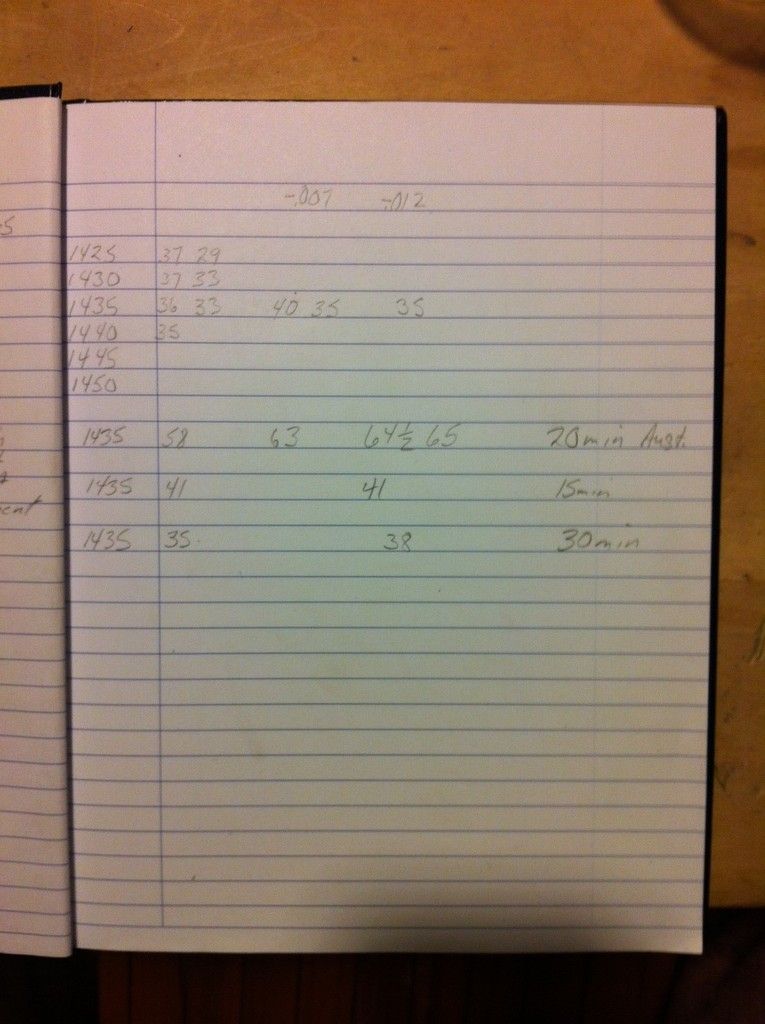 -.007 -.012
1425 37 29
1430 37 33
1435 36 33 40 35 35
1440 35
1445
1450
1435 58 63 64½ 65 20min Aust.
1435 41 41 15min
1435 35 38 30min